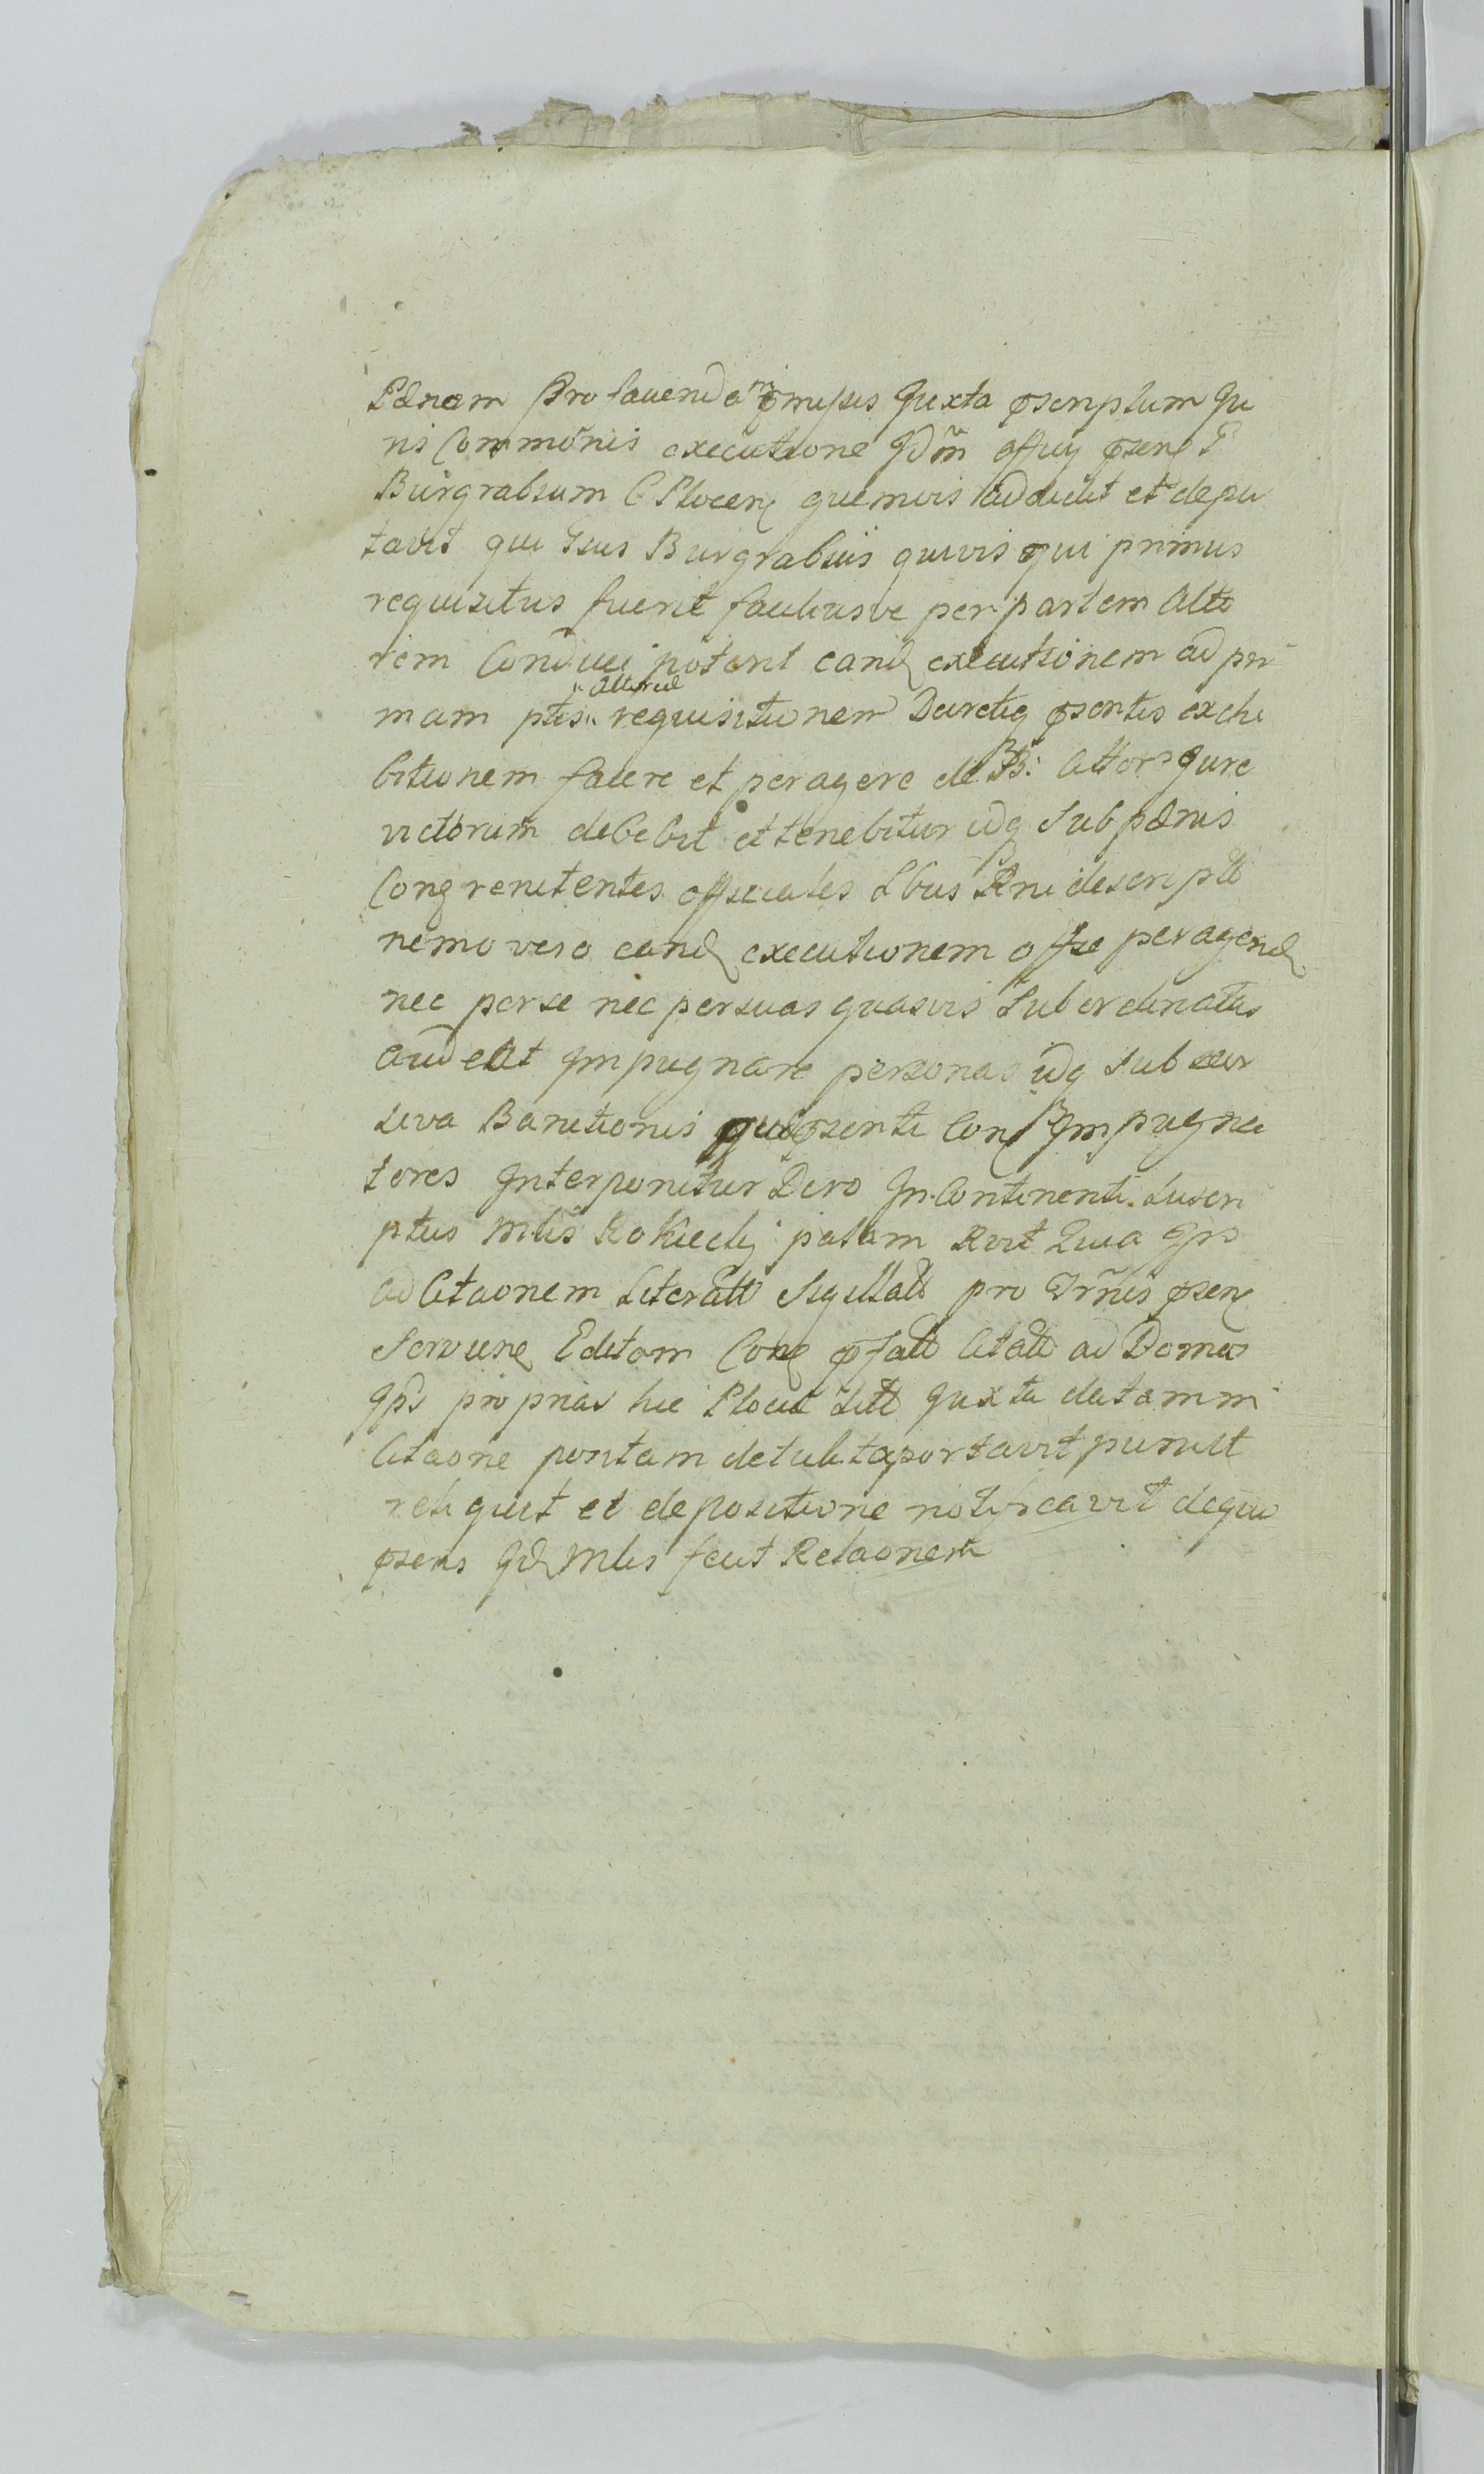 Pænam pro facienda in præmissis Juxta præscriptum Ju
ris Commōnis executione Jdm̃ offuy præsens G
Burgrabium C Plocen quemvis addidit et depu
tavit qui Gsus Burgrabius quivis qui primus
requisitus fuerit faciliusve per partem Acto
rem Conduci poterit eand executionem ad pri
mam ptis "Actoreæ" requisitionem Decretiq præsentis exchi
bitionem facere et peragere de BB: Actori Jure
victorum debebit et tenebitur idq Sub pænis
Con renitentes officiales Lbus Rni descriptt
nemo vero eand executionem offse peragend
nec per se nec per suas quasvis Subordinatas
audeat Jmpugnare personas idq sub
Banitionis præsenti Con Jmpugna
tores Jnterponitur Dcro Jn Continenti Suscri
ptus Mlis Rokicclij palam Rvit Quia Jps
ad Citaonem Literatt Sigillatt pro Trm̃is præsen
Servien Editam Con præfatt Citatt ad Domus
Jps proprias hic Plociæ Sitt Juxta datam in
Citaone positam detulit aportavit posuit
reliquit et de positione notificavit de quo
præsens Jd Mlis fecit Relaonem